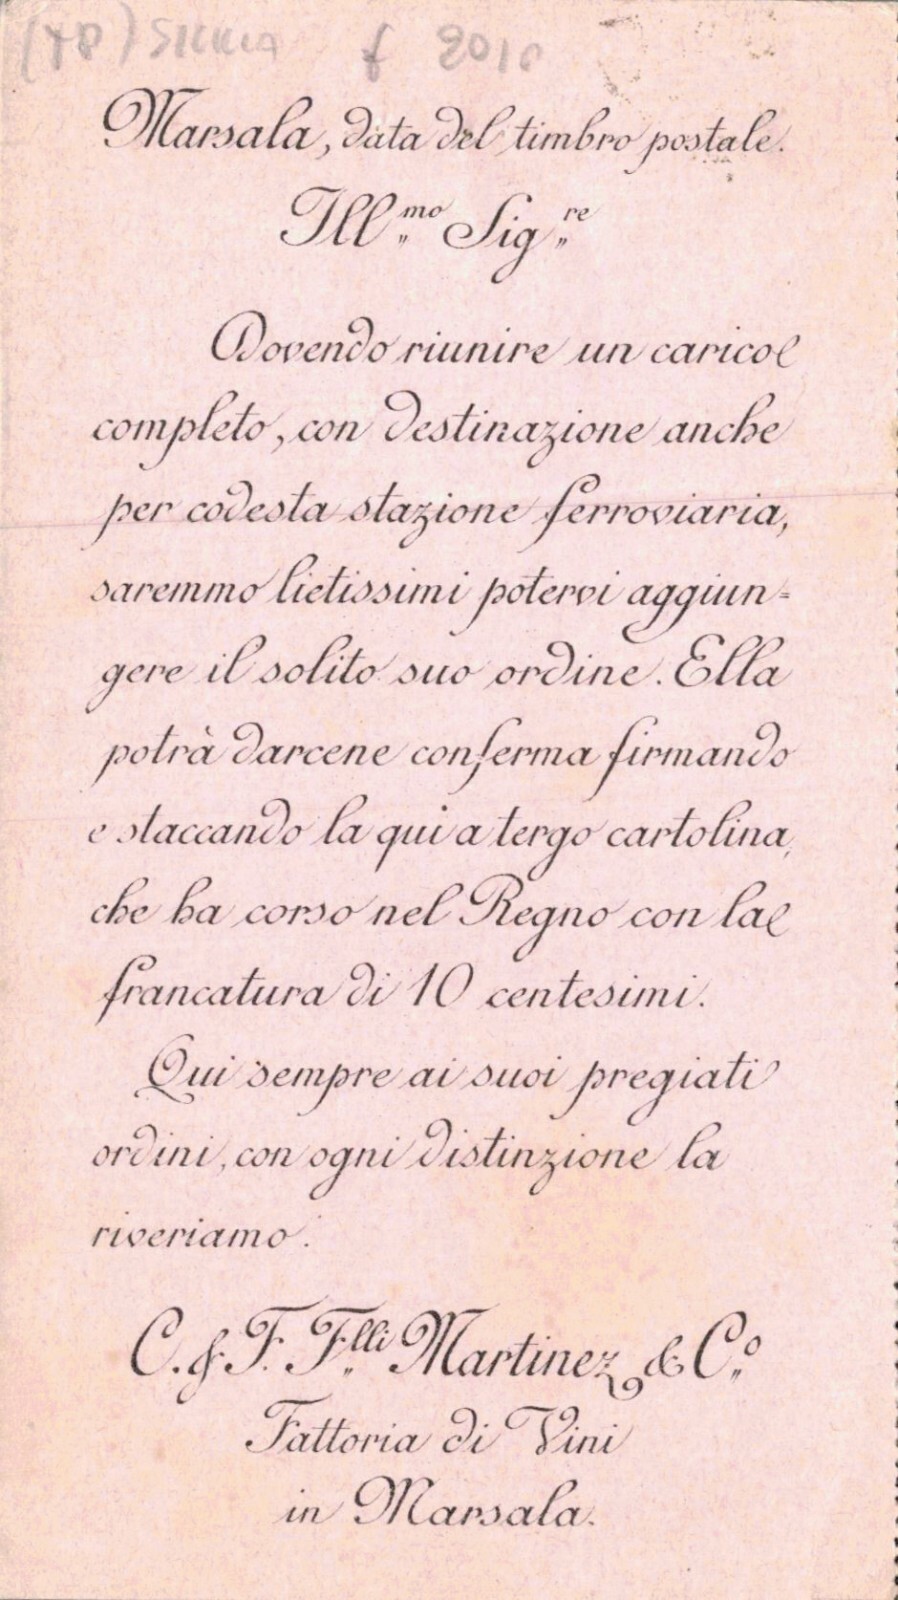 (TP) SICILIA
Marsala, data del timbro postale.
Ill.mo Sig.re
Dovendo riunire un carico
completo, con destinazione anche
per codesta stazione ferroviaria,
saremmo lietissimi potervi aggiun=
gere il solito suo ordine. Ella
potrà darcene conferma firmando
e staccando la qui a tergo cartolina,
che ha corso nel Regno con la
francatura di 10 centesimi.
Qui sempre ai suoi pregiati
ordini, con ogni distinzione la
riveriamo.
C. & F. F.lli Martinez & C.o
Fattoria di Vini
in Marsala.